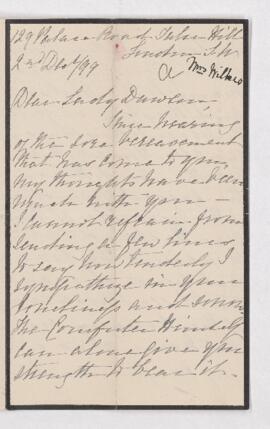 129 Palace Road Tulse Hill
London S.W.
2nd Dec/99
a Mrs Wilkes
Dear Lady Dawson,
Since hearing
of the sore bereavement
that has come to you
my thoughts have been
much with you —
I cannot refrain from
sending a few lines
to say how tenderly I
sympathize in your
loneliness and sorrow
The Comforter Himself
can alone give you
strength to bear it.